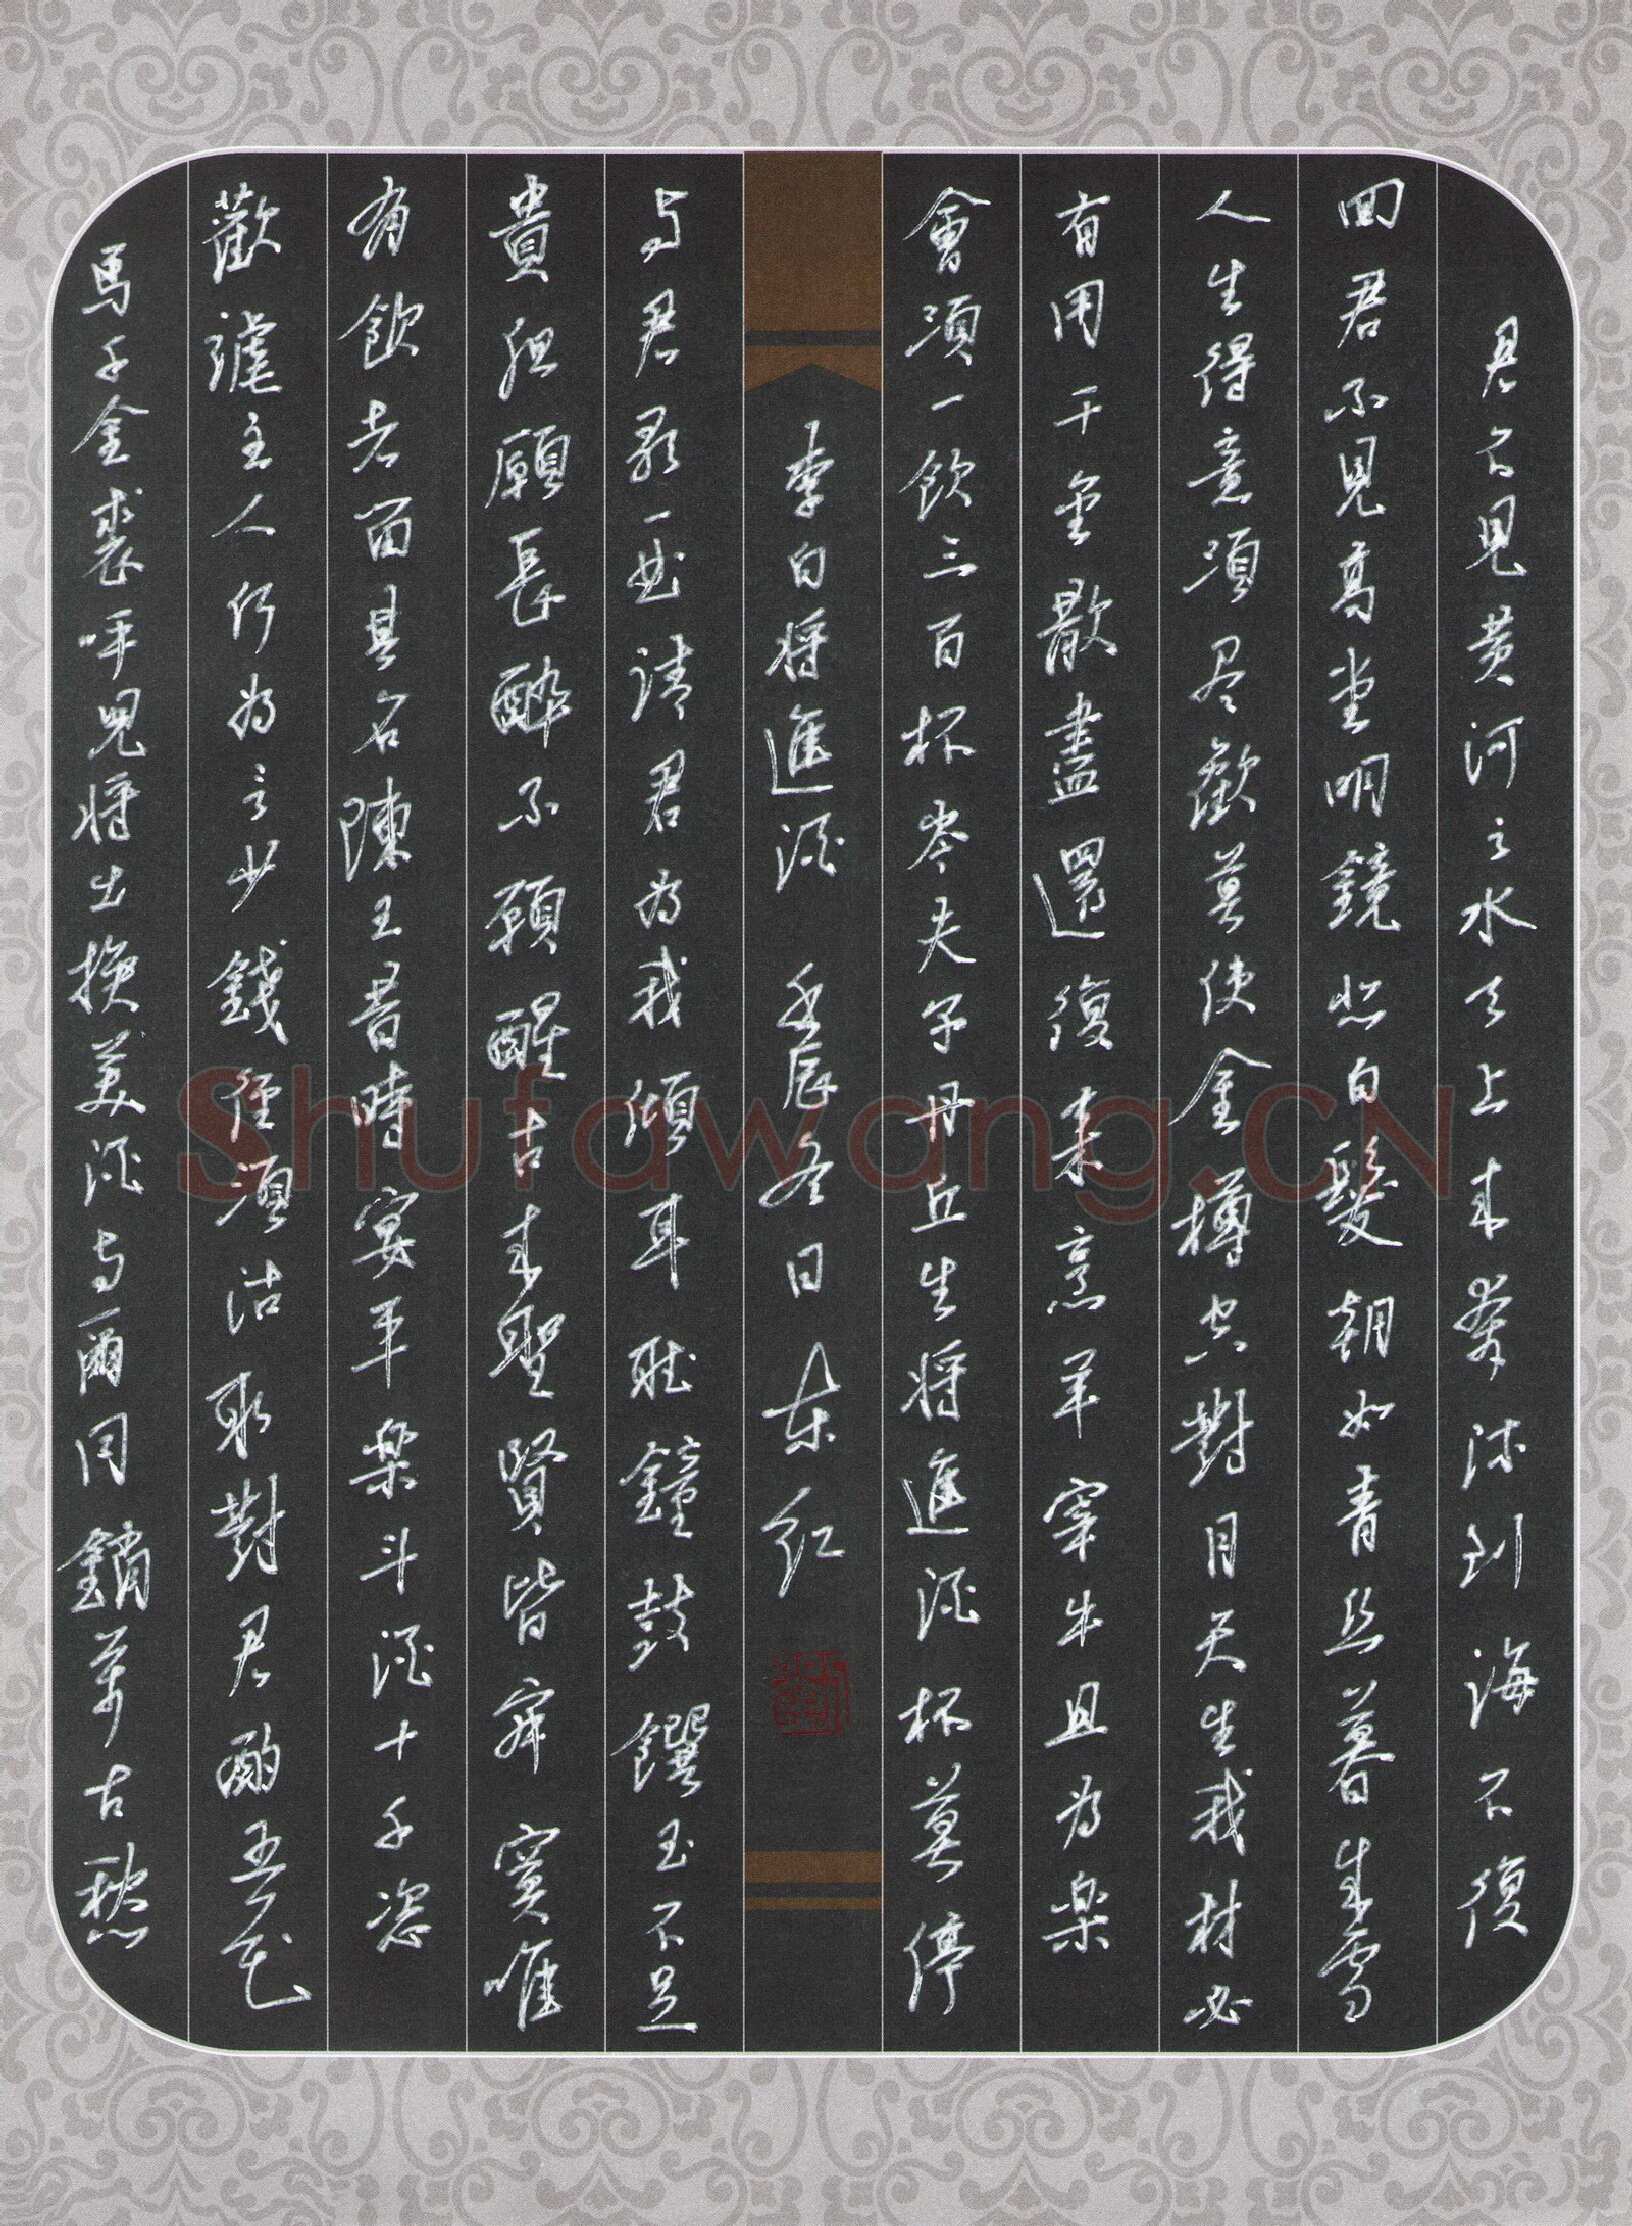 君不見黄河之水天上来奔流到海不復
回君不見高堂明鏡悲白髮朝如青丝暮成雪
人生得意須尽歡莫使金樽空對月天生我材必
有用千金散盡還復来烹羊宰牛且为樂
會須一飲三百杯岑夫子丹丘生将進酒杯莫停
李白将進酒 壬辰冬日 东红
与君歌一曲请君为我傾耳听鐘鼓饌玉不足
貴但願長醉不願醒古来聖賢皆寂寞唯
有飲者留其名陳王昔時宴平樂斗酒十千恣
歡謔主人何为言少錢徑須沽取對君酌五花
馬千金裘呼兒将出换美酒与爾同銷萬古愁
Shufawang.CN